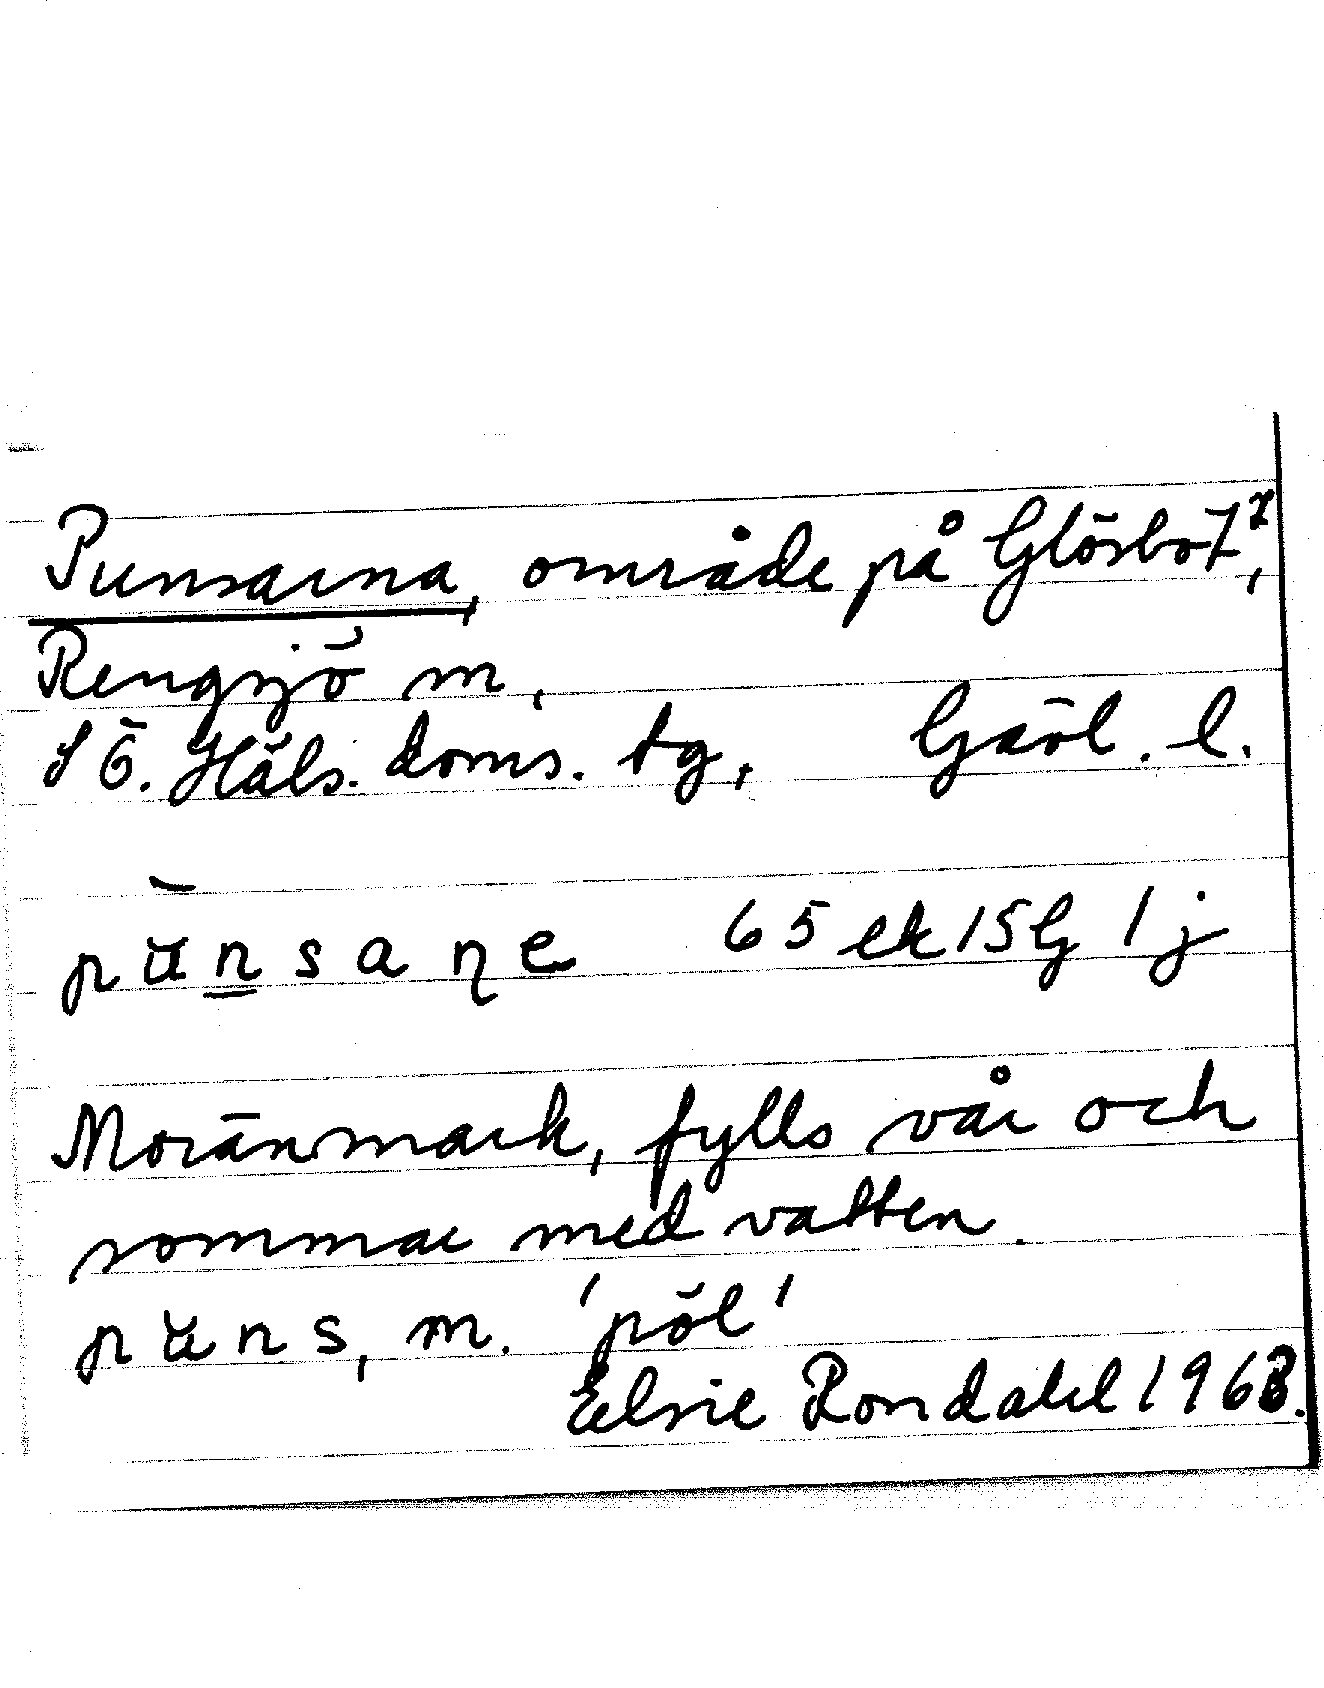 Punsarna, område på Glösbo 7²,
Rengsjö m,
S Ö. Häls. doms. tg, Gävl. l.
pun̲saṇe 65 ek 15G 1j
Moränmark, fylls vår och
sommar med vatten.
puns, m. 'pöl'
Elsie Rondahl 1968.